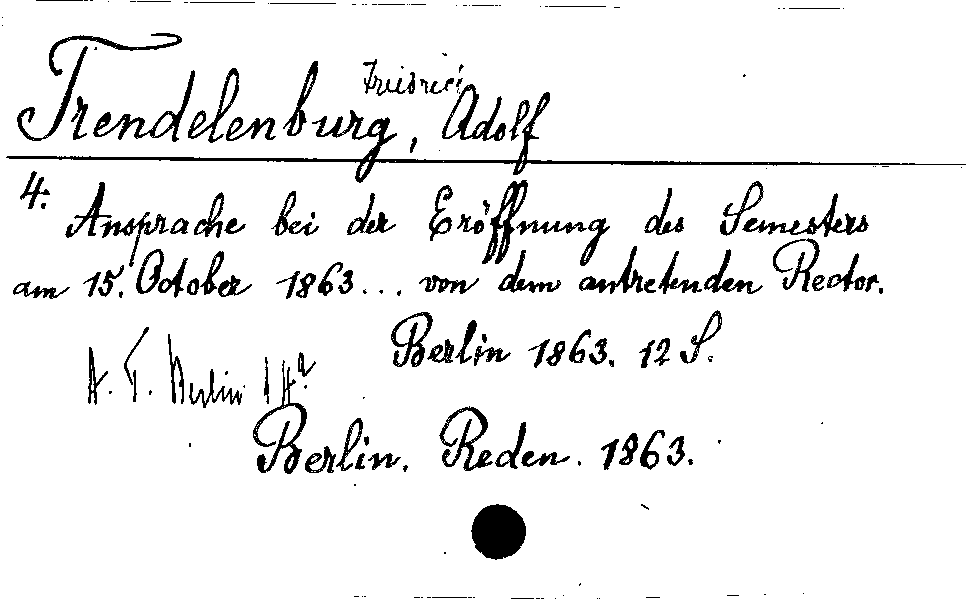 Trendelenburg, Friedrich Adolf
4:
Ansprache bei der Eröffnung des Semesters
am 15. October 1863... von dem antretenden Rector.
Berlin 1863. 12 S.
A. T. Berlin 14ª
Berlin. Reden. 1863.